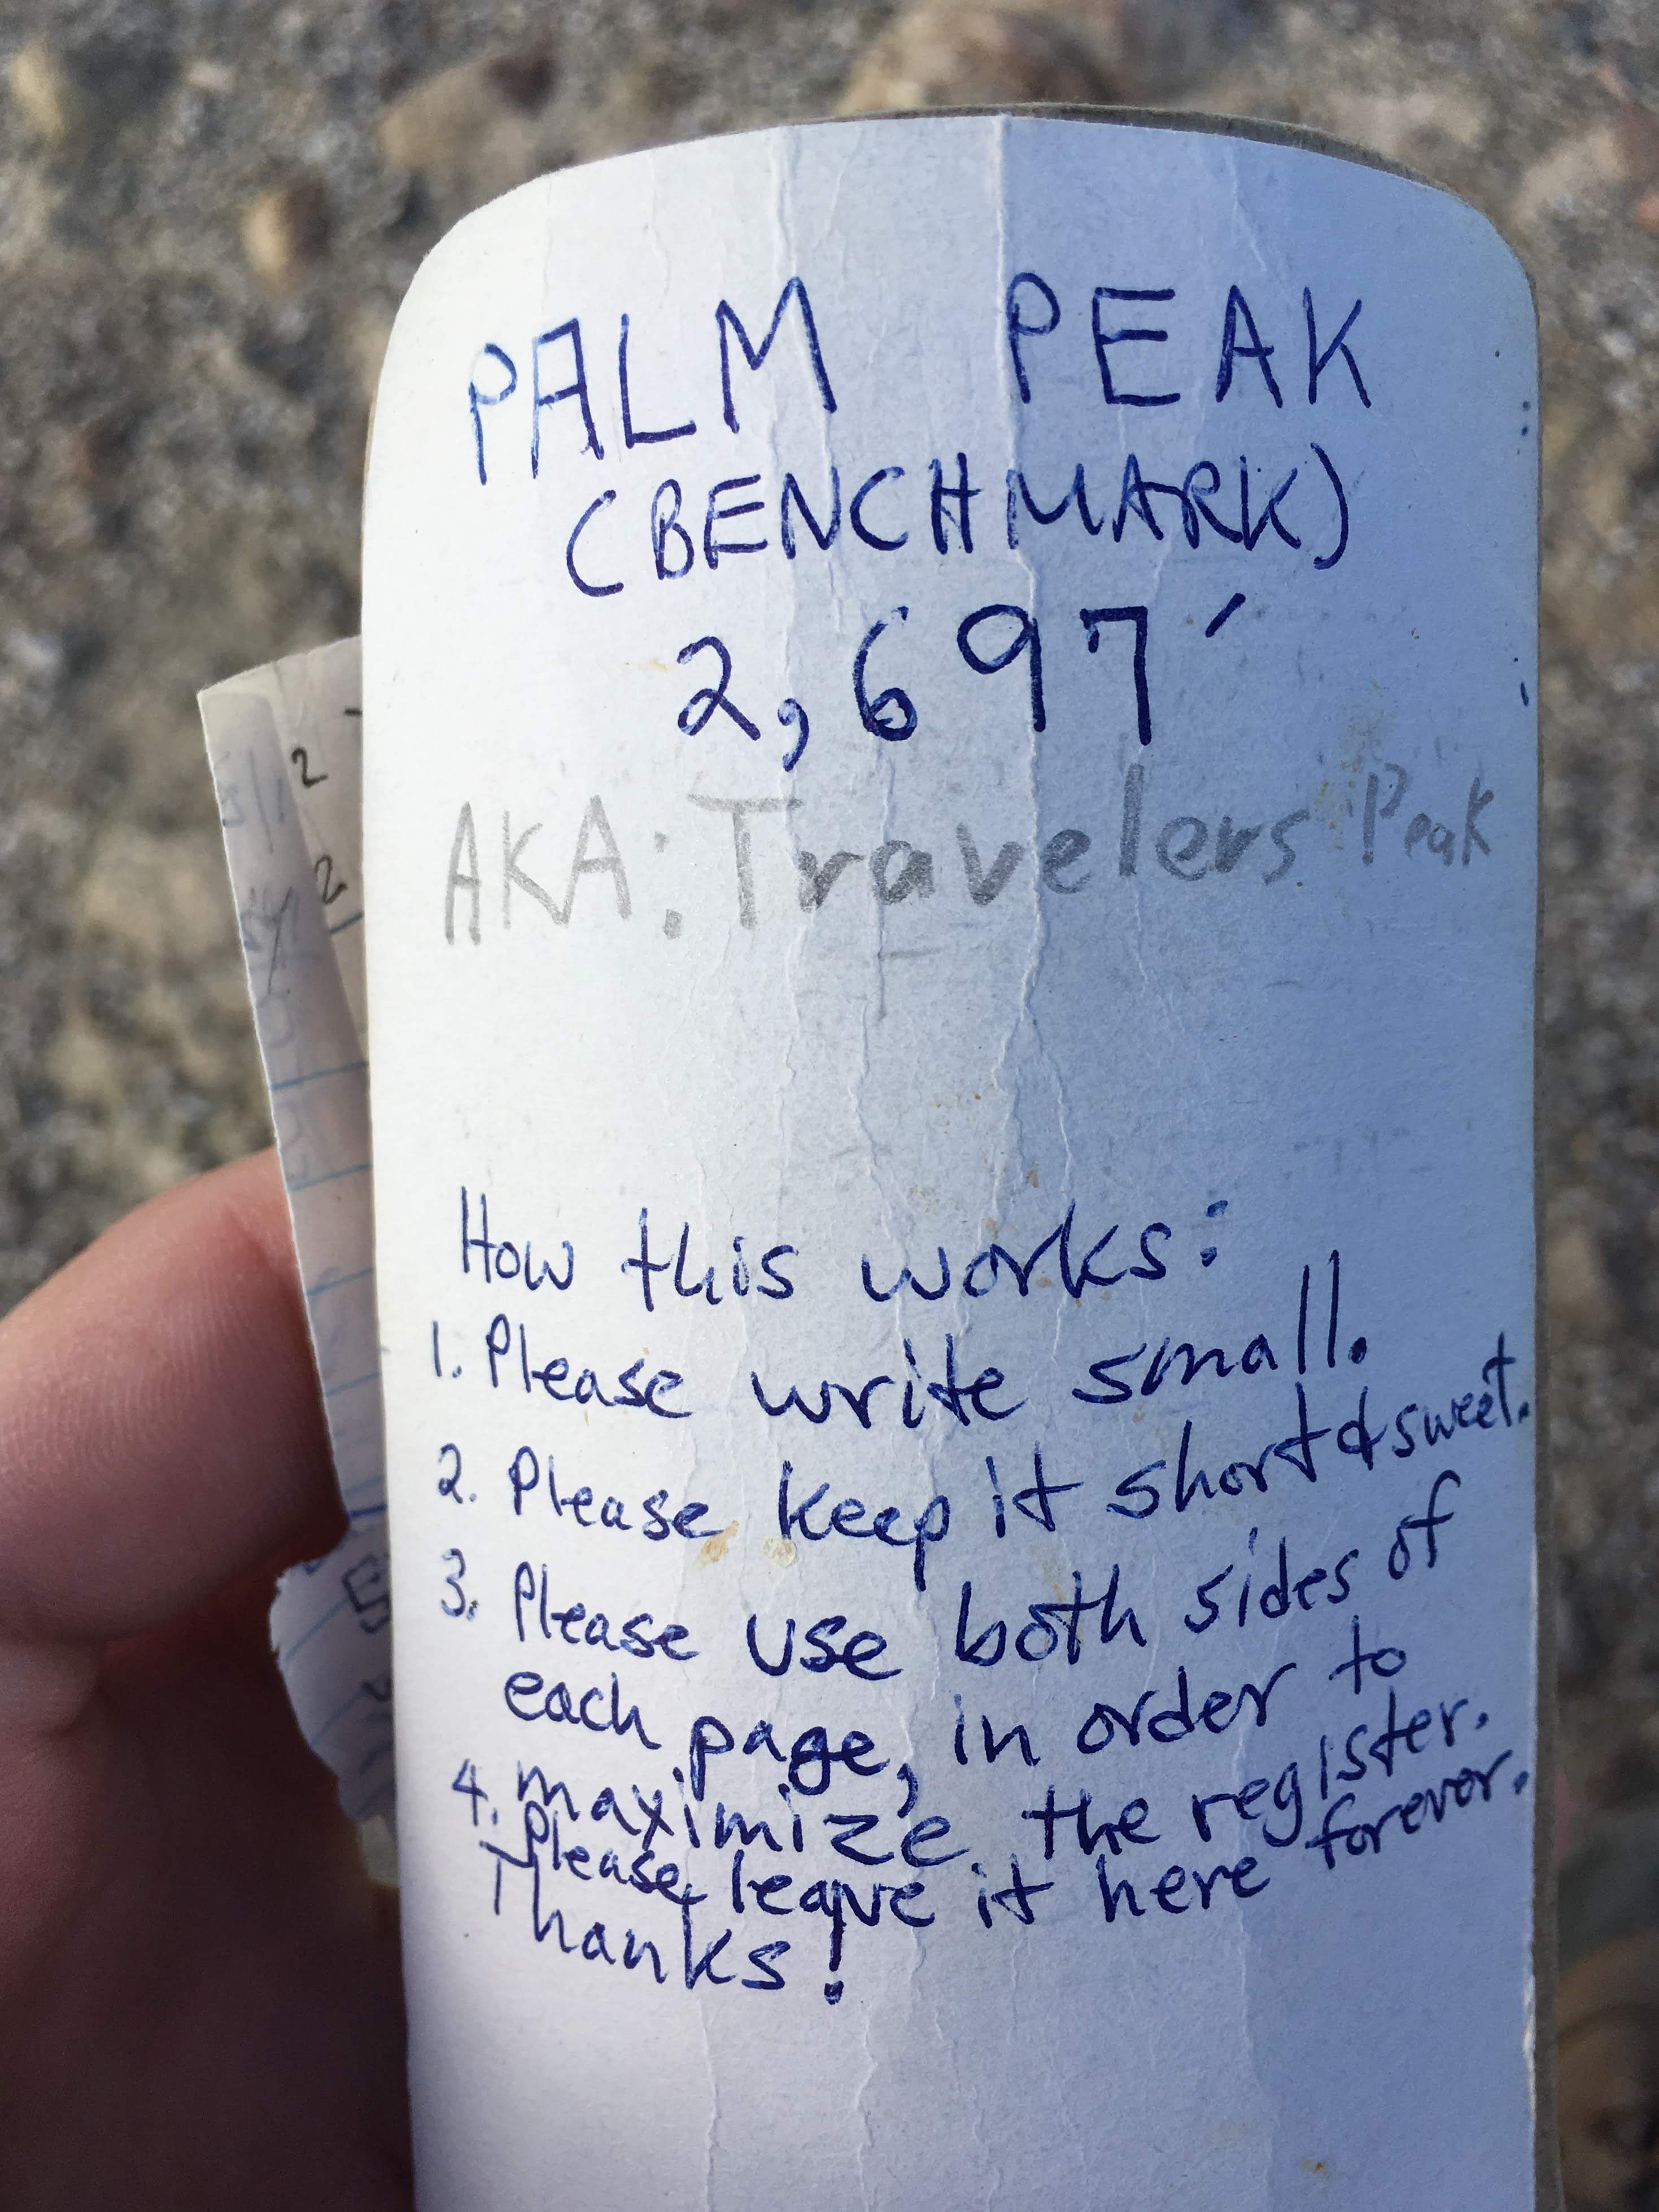 PALM PEAK
(BENCHMARK)
2,697'
AKA: Travelers Peak
How this works:
1. Please write small.
2. Please keep it short & sweet.
3. Please use both sides of
each page, in order to
maximize the register.
4. Please leave it here forever.
Thanks!
2
2